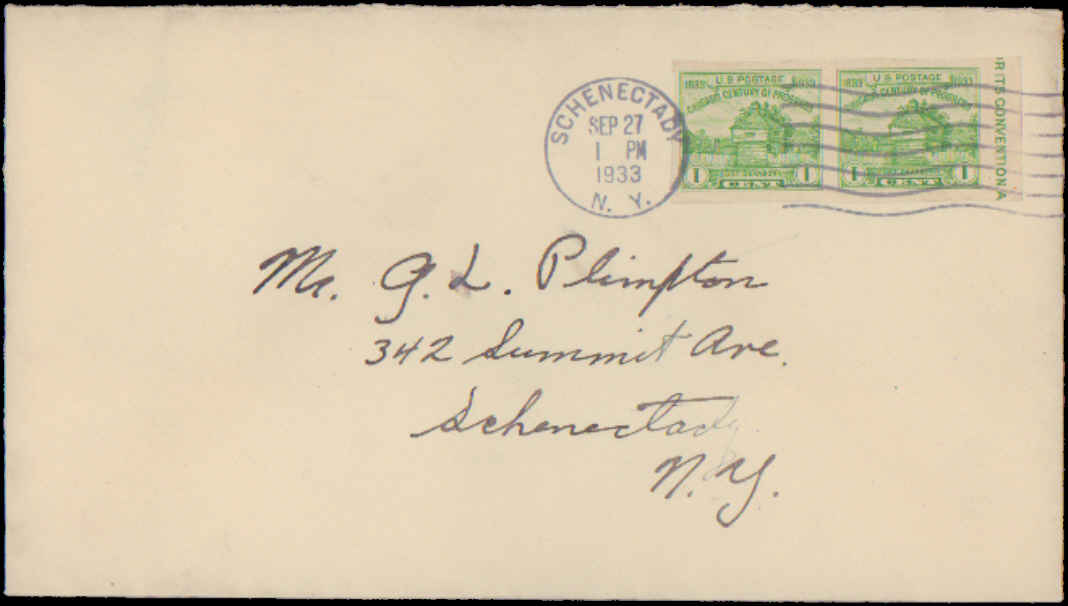 SCHENECTADY
SEP 27
1 PM
1933
N. Y.
1833 U S POSTAGE 1933
CHICAGO CENTURY OF PROGRESS
1 CENT 1
1833 U S POSTAGE 1933
CENTURY OF PROGRESS
1 CENT 1
R ITS CONVENTION A
Mr. G. L. Plimpton
342 Summit Ave.
Schenectady
N. Y.